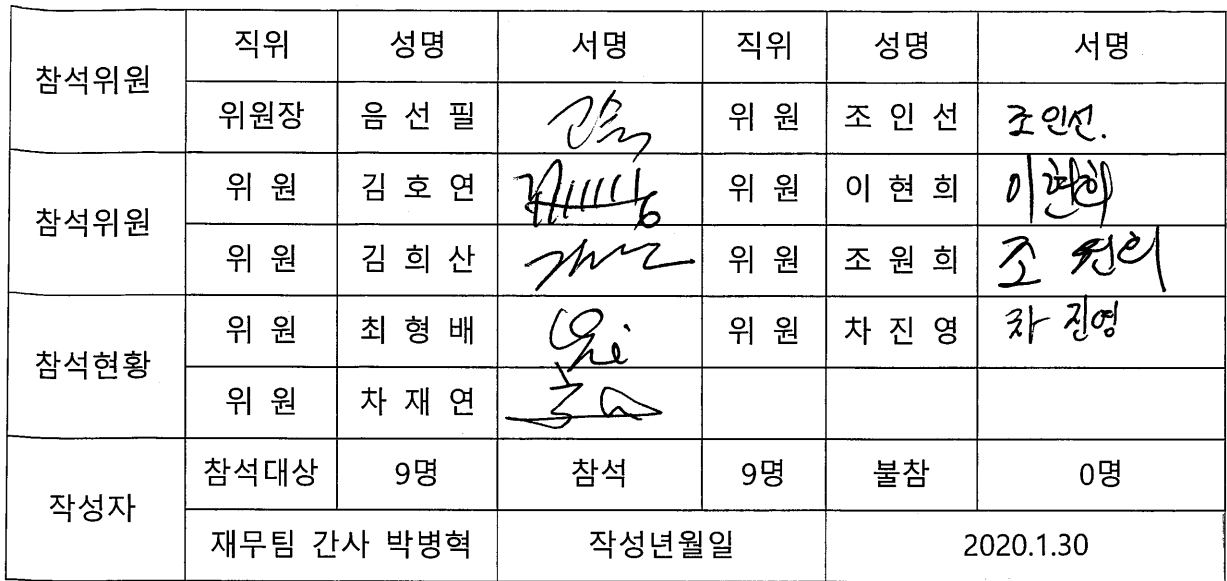 참석위원 직위 성명 서명 직위 성명 서명
위원장 음 선 필 위 원 조 인 선 조인선.
참석위원 위 원 김 호 연 위 원 이 현 희 이현희
위 원 김 희 산 위 원 조 원 희 조 원희
참석현황 위 원 최 형 배 위 원 차 진 영 차 진영
위 원 차 재 연
작성자 참석대상 9명 참석 9명 불참 0명
재무팀 간사 박병혁 작성년월일 2020.1.30